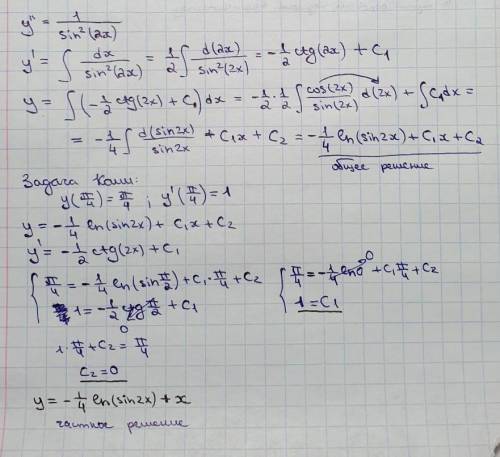 y'' = 1/sin²(2x)
y' = ∫ dx/sin²(2x) = 1/2 ∫ d(2x)/sin²(2x) = -1/2 ctg(2x) + C₁
y = ∫ (-1/2 ctg(2x) + C₁) dx = -1/2 · 1/2 ∫ cos(2x)/sin(2x) d(2x) + ∫ C₁dx =
= -1/4 ∫ d(sin2x)/sin2x + C₁x + C₂ = -1/4 ln(sin2x) + C₁x + C₂
общее решение
Задача Коши:
y(π/4) = π/4 ; y'(π/4) = 1
y = -1/4 ln(sin2x) + C₁x + C₂
y' = -1/2 ctg(2x) + C₁
{ π/4 = -1/4 ln(sin π/2) + C₁·π/4 + C₂
1 = -1/2 ctg π/2 + C₁
0
{ π/4 = -1/4 ln + C₁ π/4 + C₂
0
1 = C₁
1·π/4 + C₂ = π/4
C₂ = 0
y = -1/4 ln(sin2x) + x
частное решение